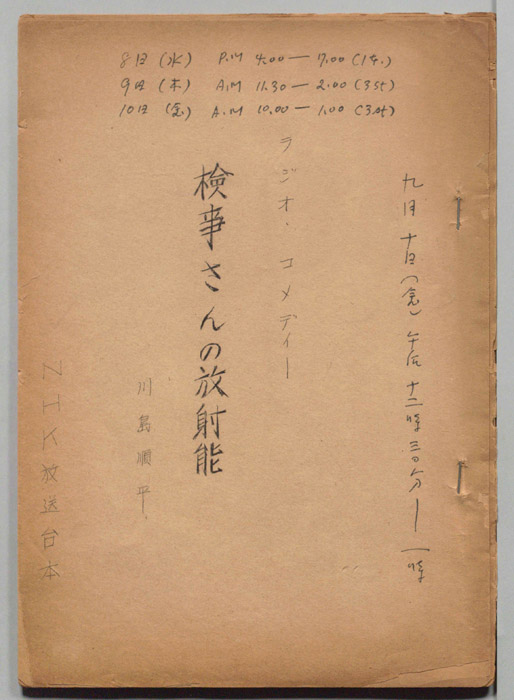 8日(水) P.M 4.00 — 7.00 (1st.)
9日(木) A.M 11.30 — 2.00 (3st)
10日(金) A.M 10.00 — 1.00 (3st)
九月十日(金)午后十二時三〇分ー一時
ラジオ・コメディー
検事さんの放射能
川島順平
NHK放送台本